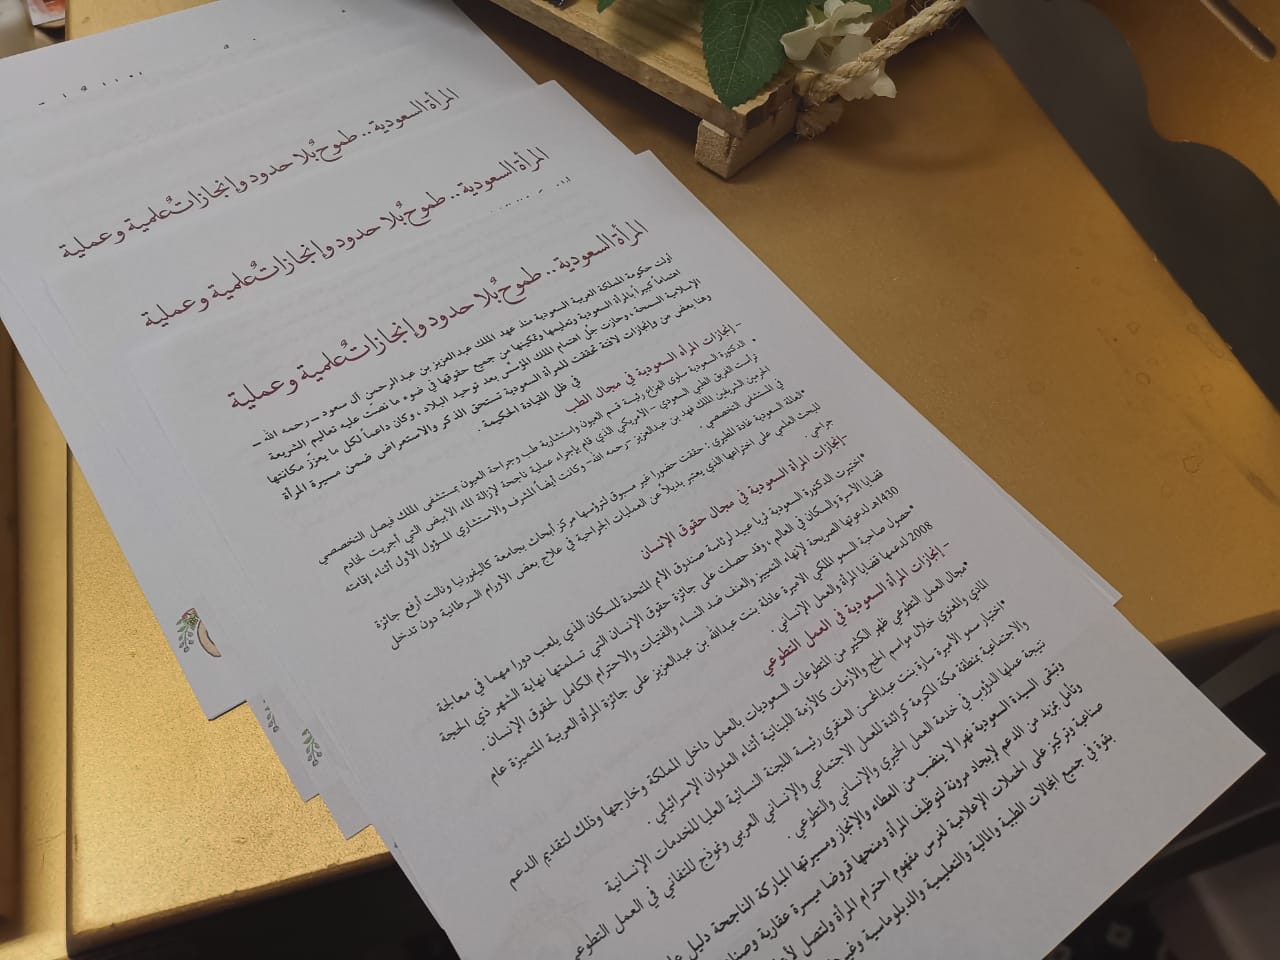 المرأة السعودية .. طموحٌ بلا حدود وإنجازاتٌ علمية وعملية
المرأة السعودية .. طموحٌ بلا حدود وإنجازاتٌ علمية وعملية
المرأة السعودية .. طموحٌ بلا حدود وإنجازاتٌ علمية وعملية
أولت حكومة المملكة العربية السعودية منذ عهد الملك عبدالعزيز بن عبد الرحمن آل سعود – رحمه الله –
اهتماماً كبيراً بالمرأة السعودية وتعليمها وتمكينها من جميع حقوقها في ضوء ما نصت عليه تعاليم الشريعة
الإسلامية السمحة ، وحازت جلّ اهتمام الملك المؤسّس بعد توحيد البلاد ، وكان داعماً لكل ما يعزّز مكانتها
وهنا بعض من وإنجازات لافتة تحققت للمرأة السعودية تستحق الذكر والاستعراض ضمن مسيرة المرأة
في ظل القيادة الحكيمة .
– إنجازات المرأة السعودية في مجال الطب
• الدكتورة السعودية سلوى الهزاع رئيسة قسم العيون واستشارية طب وجراحة العيون بمستشفى الملك فيصل التخصصي
ترأست الفريق الطبي السعودي – الأمريكي الذي قام بإجراء عملية ناجحة لإزالة الماء الأبيض التي أجريت لخادم
الحرمين الشريفين الملك فهد بن عبدالعزيز –رحمه الله– وكانت أيضاً المشرف والاستشاري المسؤول الأول أثناء إقامته
في المستشفى التخصصي .
•العالمة السعودية غادة المطيري: حققت حضورا غير مسبوق لترؤسها مركز أبحاث بجامعة كاليفورنيا ونالت أرفع جائزة
للبحث العلمي على اختراعها الذي يعتبر بديلاً عن العمليات الجراحية في علاج بعض الأورام السرطانية دون تدخل
جراحي .
–إنجازات المرأة السعودية في مجال حقوق الإنسان
•اختيرت الدكتورة السعودية ثريا عبيد لرئاسة صندوق الأمم المتحدة للسكان الذي يلعب دورا مهما في معالجة
قضايا الأسرة والسكان في العالم ، وقد حصلت على جائزة حقوق الإنسان التي تسلمتها نهاية الشهر ذي الحجة
1430هـ لدعوتها الصريحة لإنهاء التمييز والعنف ضد النساء والفتيات والاحترام الكامل لحقوق الإنسان .
•حصول صاحبة السمو الملكي الأميرة عادلة بنت عبدالله بن عبدالعزيز على جائزة المرأة العربية المتميزة عام
2008 لدعمها قضايا المرأة والعمل الإنساني .
– إنجازات المرأة السعودية في العمل التطوعي
•مجال العمل التطوعي ظهر الكثير من المتطوعات السعوديات بالعمل داخل المملكة وخارجها وذلك لتقديم الدعم
المادي والمعنوي خلال مواسم الحج والأزمات كالأزمة اللبنانية أثناء العدوان الإسرائيلي .
•اختيار سمو الأميرة سارة بنت عبدالمحسن العنقري رئيسة اللجنة النسائية العليا للخدمات الإنسانية
والاجتماعية بمنطقة مكة المكرمة كرائدة للعمل الاجتماعي والإنساني العربي ونموذج للتفاني في العمل التطوعي
نتيجة عملها الدؤوب في خدمة العمل الخيري والإنساني والتطوعي .
وتبقى السيدة السعودية نهرا لا ينضب من العطاء والإنجاز ومسيرتها المباركة الناجحة دليل
ونأمل لمزيد من الدعم لإيجاد مرونة لتوظيف المرأة ومنحها قروضا ميسرة عقارية
صناعية وتركيز على الحملات الإعلامية لغرس مفهوم احترام المرأة ولتصل
بقوة في جميع المجالات الطبية والمالية والتعليمية والدبلوماسية